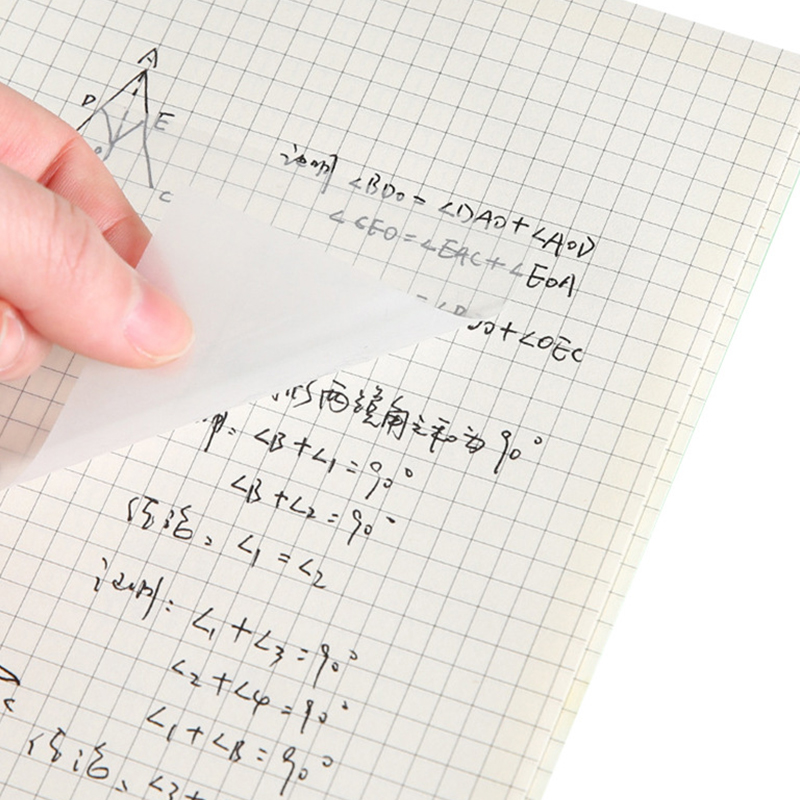 A
D
E
C
证明 ∠BDO = ∠DAO + ∠AOD
∠CEO = ∠EAC + ∠EOA
+ ∠OEC
形两锐角之和为 90°
∠B + ∠1 = 90°
∠B + ∠2 = 90°
结论、∠1 = ∠2
证明: ∠1 + ∠3 = 90°
∠2 + ∠4 = 90°
∠1 + ∠B = 90°
结论、∠3 +